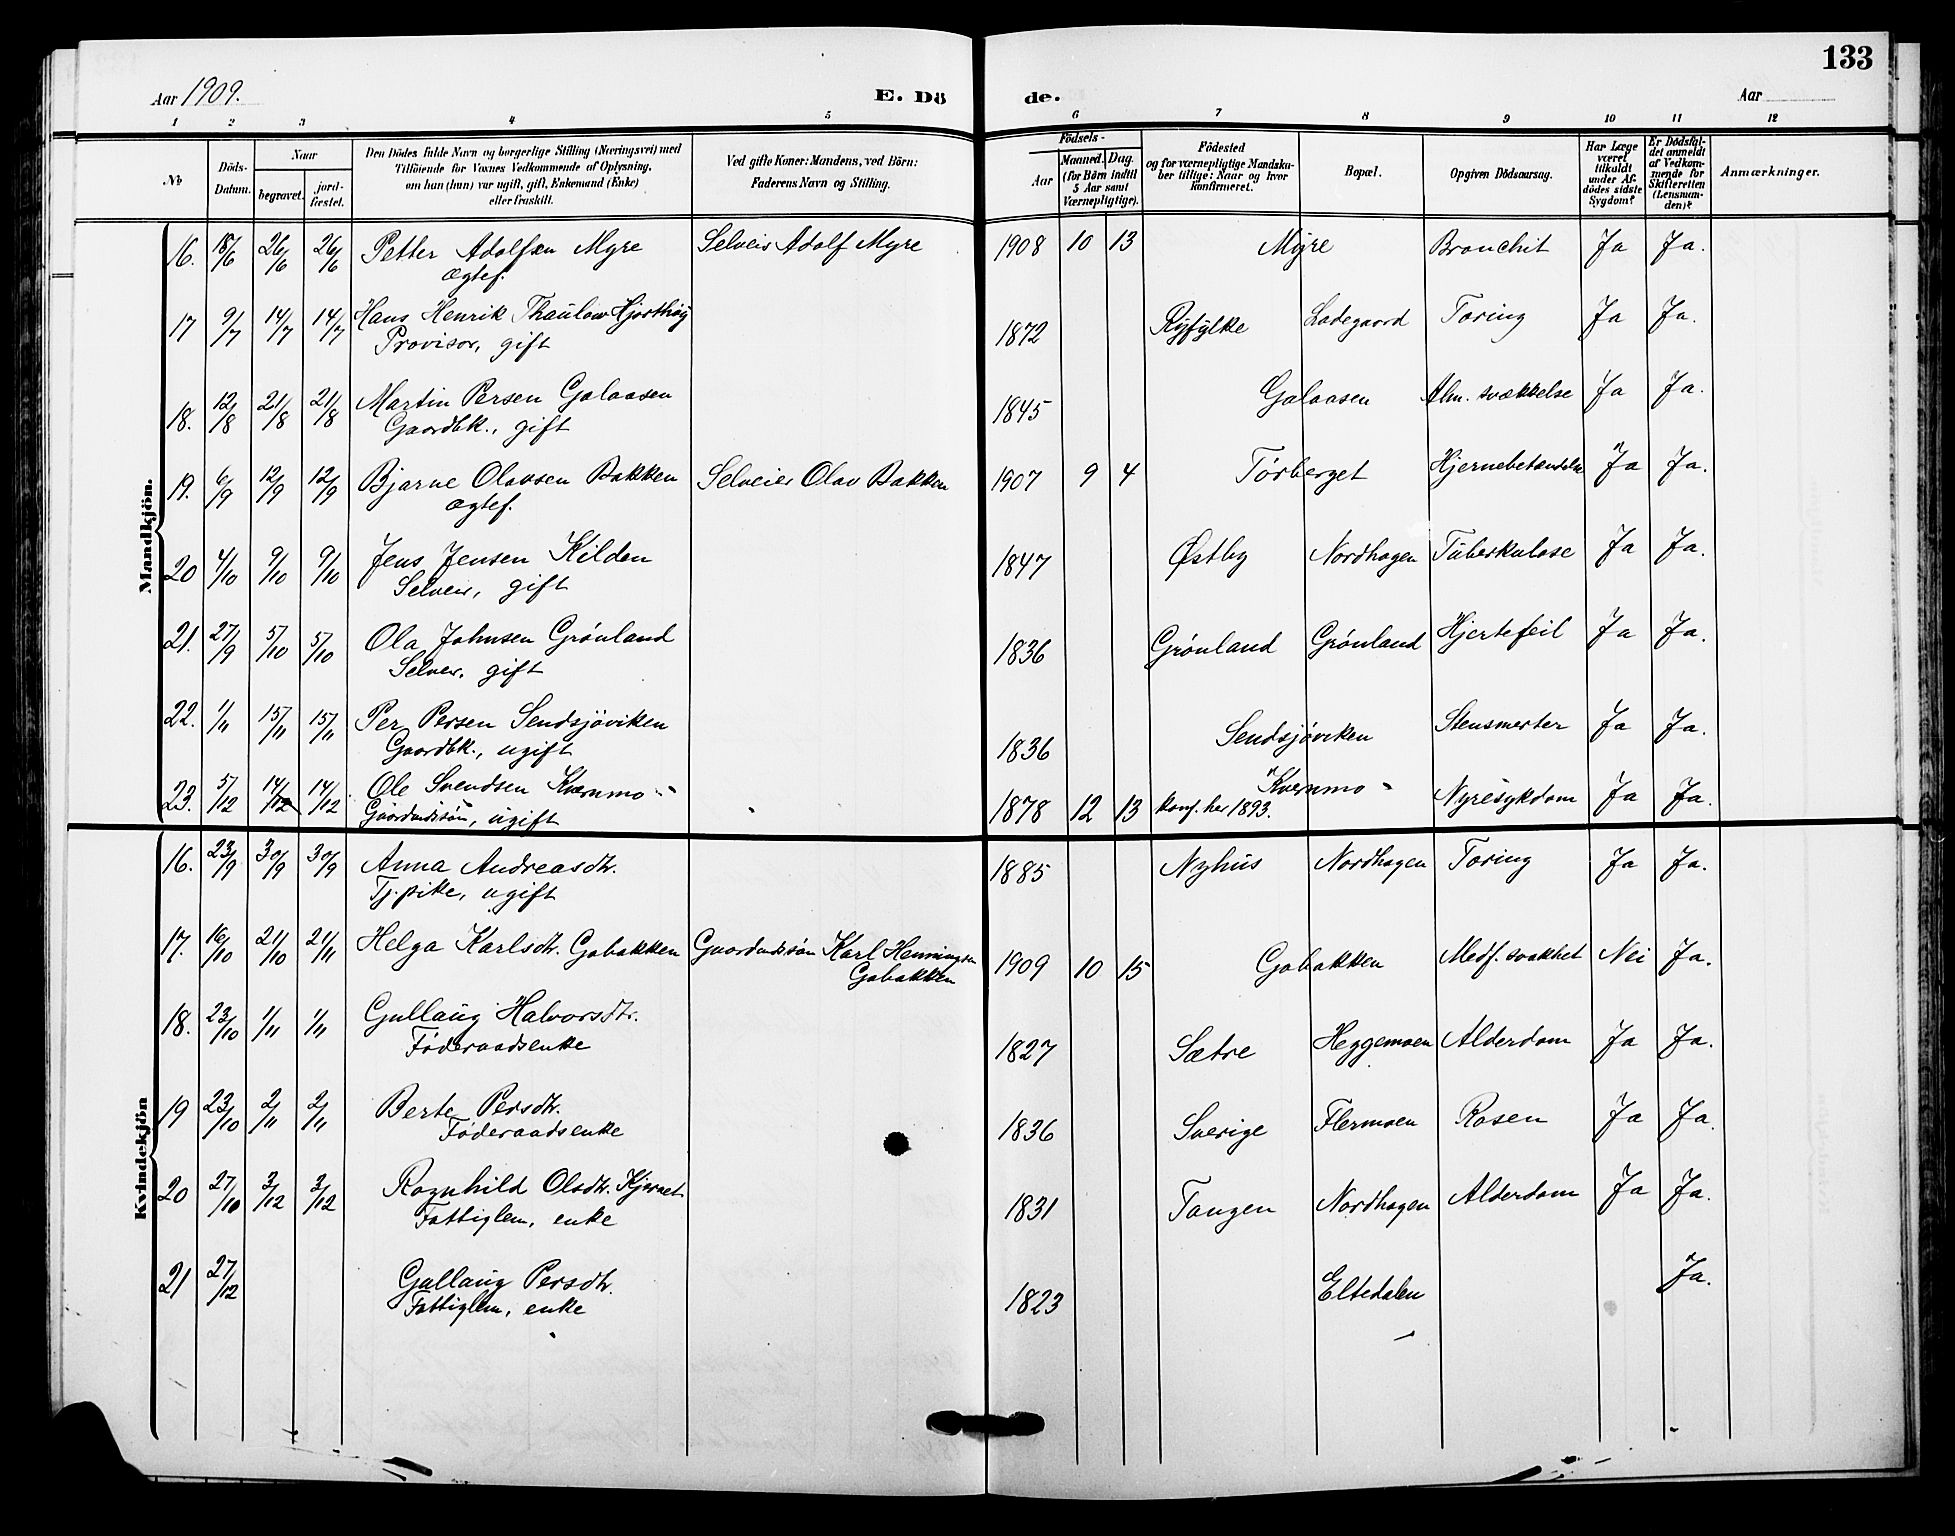 133
Aar 1909.
E. Dö de.
Aar
1 2 3 4 5 6 7 8 9 10 11 12
No
Döds-Datum.
Naar
begravet.
jord-fæstet.
Den Dödes fulde Navn og borgerlige Stilling (Næringsvei) med
Tilföiende for Voxnes Vedkommende af Oplysning,
om han (hun) var ugift, gift, Enkemand (Enke)
eller fraskilt.
Ved gifte Koner: Mandens, ved Börn:
Faderens Navn og Stilling.
Födsels-
Aar
Maaned. Dag.
(for Börn indtil
5 Aar samt
Værnepligtige).
Födested
og for værnepligtige Mandsku-
ber tillige: Naar og hvor
konfirmeret.
Bopæl.
Opgiven Dödsaarsag.
Har Læge
været
tilkaldt
under Af-
dödes sidste
Sygdom?
Er Dödsfal-
det anmeldt
af Vedkom-
mende for
Skifteretten
(Lensman-
den)?
Anmærkninger.
Mandkjön.
16. 18/6 26/6 26/6 Petter Adolfsen Myre Selveier Adolf Myre 1908 10 13 Myre Bronchit Ja Ja.
ægtef.
17 9/7 14/7 14/7 Hans Henrik Thaulow Hjorthöy 1872 Ryfylke Ladegaard Tæring Ja Ja.
Provisor, gift
18. 12/8 21/8 21/8 Martin Persen Galaasen 1845 Galaasen Alm. svækkelse Ja Ja.
Gaardbk., gift
19. 6/9 12/9 12/9 Bjarne Olavsen Bakken Selveier Olav Bakken 1907 9 4 Tørberget Hjernebetændelse Ja Ja.
ægtef.
20 4/10 9/10 9/10 Jens Jensen Kilden 1847 Østby Nordhagen Tuberkulose Ja Ja.
Selveier, gift
21. 27/9 5/10 5/10 Ola Johnsen Grönland 1836 Grönland Grönland Hjertefeil Ja Ja.
Selveier. gift
22. 1/11 15/11 15/11 Per Persen Sendsjöviken 1836 Sendsjöviken Stensmerter Ja Ja.
Gaardbk., ugift
23. 5/12 14/12 14/12 Ole Svendsen Kværnmo 1878 12 13 Kvernmo konf. her 1893. Nyresykdom Ja Ja.
Gaardmdssön, ugift
Kvindekjön
16. 23/9 30/9 30/9 Anna Andreasdtr. 1885 Nyhus Nordhagen Tæring Ja Ja.
Tj.pike, ugift
17. 16/10 21/10 21/11 Helga Karlsdtr. Gabakken Gaardmdssön Karl Henningsen 1909 10 15 Gabakken Medf. svakhet Nei Ja.
Gabakken
18. 23/10 1/11 1/11 Gullaug Halvorsdtr. 1827 Sætre Heggemoen Alderdom Ja Ja.
Föderaadsenke
19 23/10 2/11 2/11 Berte Persdtr. 1836 Sverige Flermoen Rosen Ja Ja.
Föderaadsenke
20 27/10 3/12 3/12 Ragnhild Olsdtr. Kjernet 1831 Tangen Nordhagen Alderdom Ja Ja.
Fattiglem, enke
21 27/12 Gullaug Persdtr. 1823 Eltedalen Ja.
Fattiglem, enke